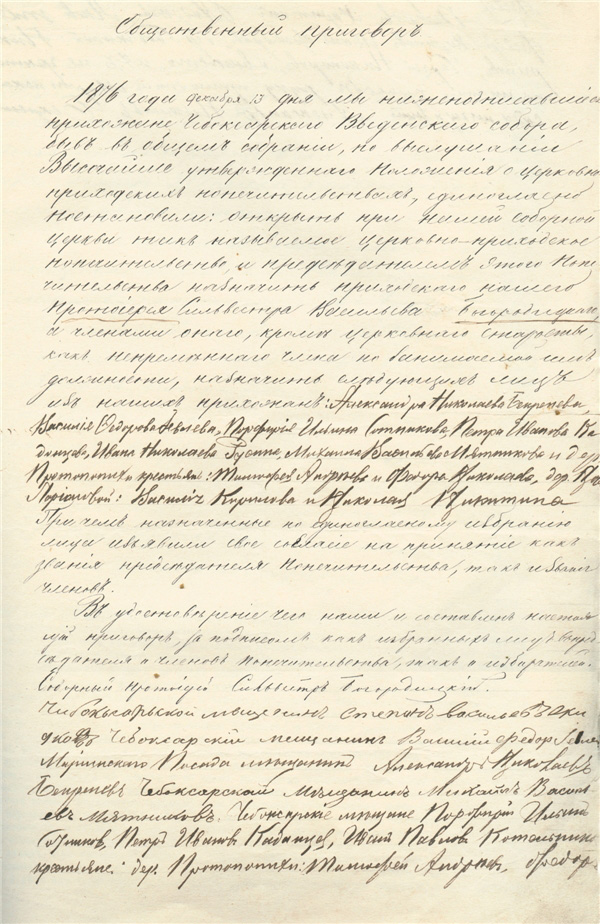 Общественный приговоръ
1876 года декабря 13 дня мы нижеподписавшіеся
прихожане Чебоксарскаго Введенскаго собора,
бывъ въ общемъ собраніи, по выслушаніи
Высочайше утвержденнаго Положенія о церковно
приходскихъ попечительствахъ, единогласно
постановили: открыть при нашей соборной
церкви такъ называемое церковно-приходское
попечительство, и предсѣдателемъ этого Попе
чительства назначить приходскаго нашего
Протоіерея Сильвестра Васильева Богородицкаго,
а членами онаго, кромѣ церковнаго старосты,
какъ непремѣннаго члена по занимаемой имъ
должности, назначить слѣдующихъ лицъ
изъ нашихъ прихожанъ: Александра Николаева
Василія Ѳедорова Порфирія Ильина Сотникова, Петра Иванова Ка
Ивана Николаева Михаила Васильева Мятникова и дер.
Протопопихи крестьянъ: Тимофея Андреева и Федора Николаева, дер.
Василія Кирилова и Николая Никитина
При чемъ назначенные по единогласному избранію
лица изъявили свое согласіе на принятіе какъ
званія предсѣдателя Попечительства, такъ и званія
членовъ.
Въ удостовѣреніе чего нами и составленъ настоя
щій приговоръ, за подписомъ какъ избранныхъ лицъ
сѣдателя и членовъ попечительства, такъ и избирателей.
Соборный протоіерей Сильвестръ Богородицкій.
Чебоксарской мещанинъ Степанъ Васильевъ
Чебоксарскій мещанинъ Василій Федор
Маріинскаго Посада мещанинъ Александръ Николаевъ
Чебоксарской Мѣщанинъ Михаилъ Василь
евъ Мятниковъ. Чебоксарскіе мещане Порфирій Ильинъ
Сотников, Петръ Иванов Павлов
крестьяне: дер. Протопопихи: Тимофей Андреев, Федор